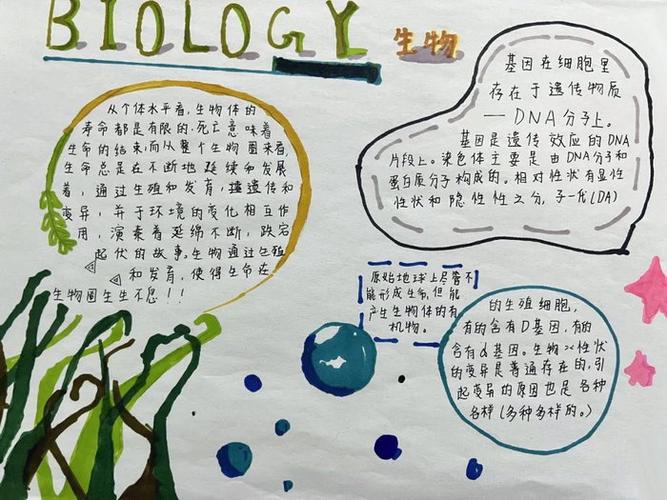 BIOLOGY
生物
从个体水平看，生物体的
寿命都是有限的，死亡意味着
生命的结束，而从整个生物圈来看，
生命总是在不断地延续和发展
着，通过生殖和发育，遗传和
变异，并于环境的变化相互作
用，演奏着延绵不断，跌宕
起伏的故事，生物通过生殖
和发育，使得生命在
生物圈生生不息！！
基因在细胞里
存在于遗传物质
—DNA分子上。
基因是遗传效应的DNA
片段上。染色体主要是由DNA分子和
蛋白质分子构成的。相对性状有显性
性状和隐性性之分，子一代(DA)
原始地球上尽管不
能形成生命，但能
产生生物体的有
机物。
的生殖细胞，
有的含有D基因，有的
含有d基因。生物性状
的变异是普遍存在的，引
起变异的原因也是各种
各样(多种多样的。)